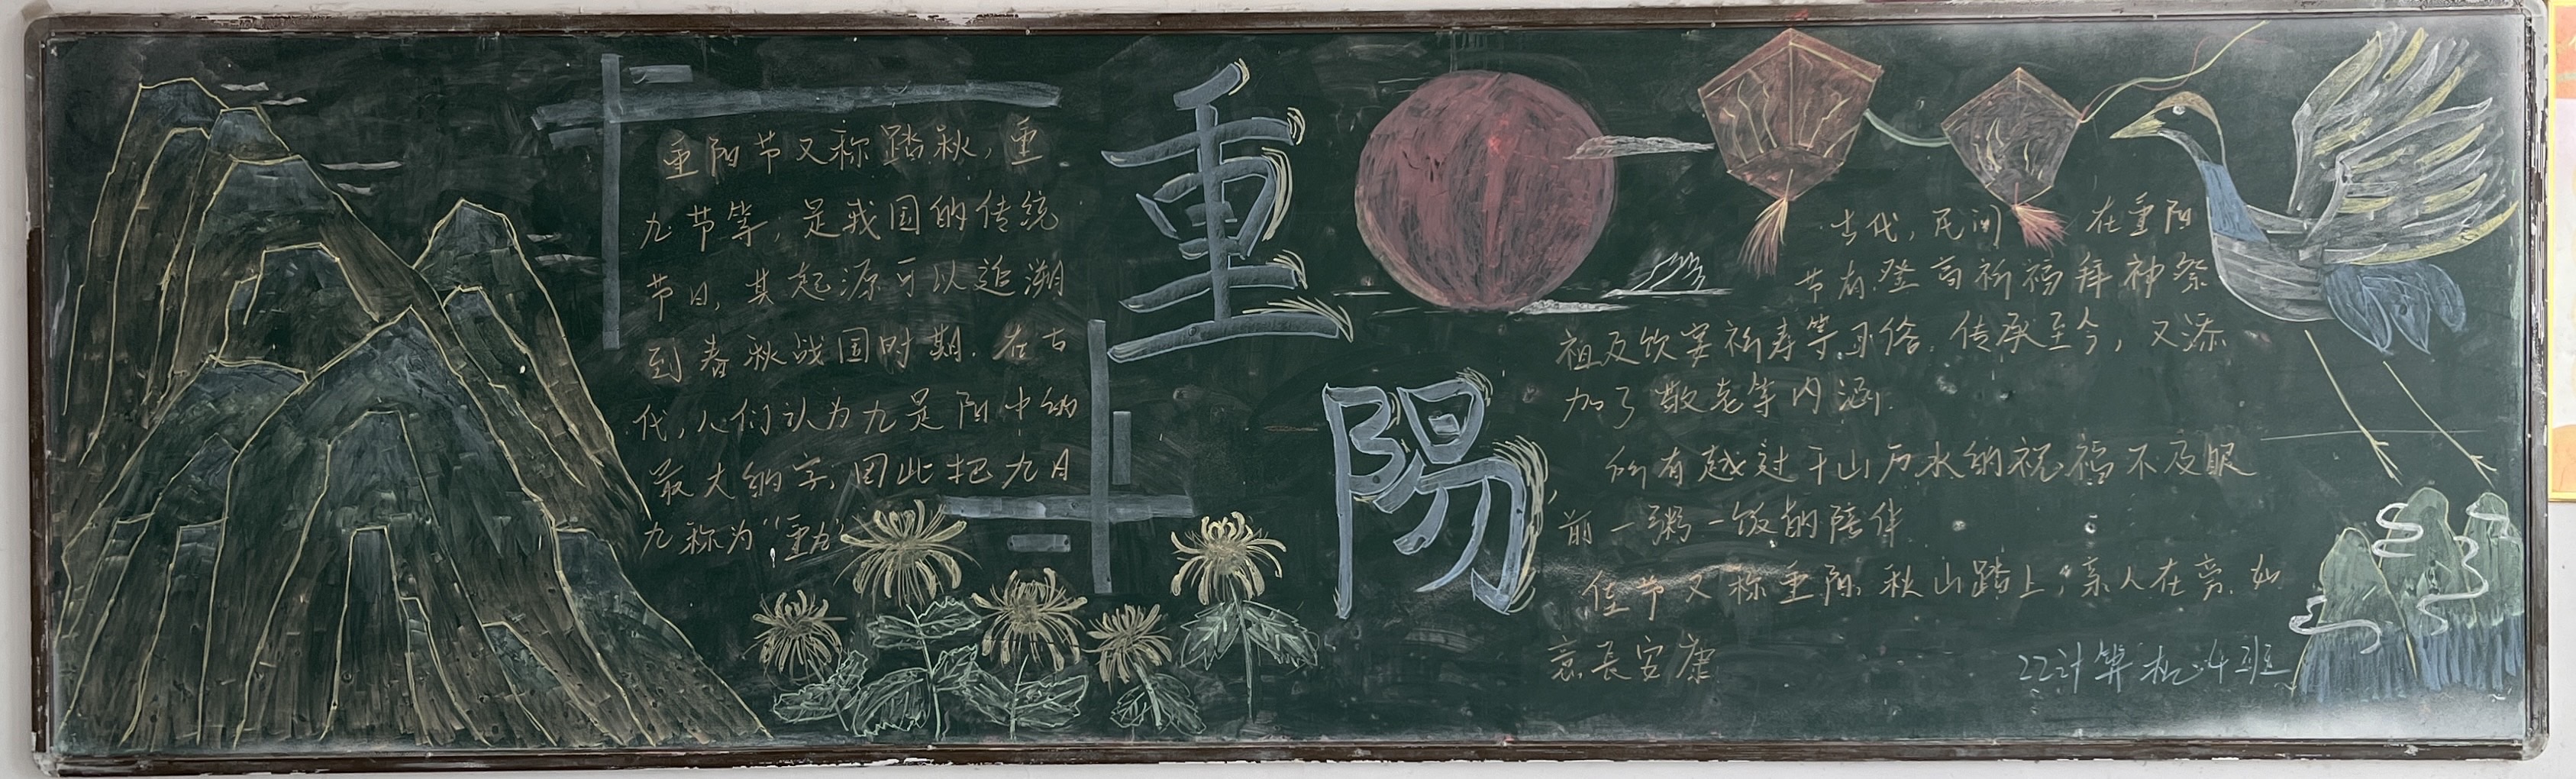 重阳节又称踏秋，重
九节等，是我国的传统
节日，其起源可以追溯
到春秋战国时期．在古
代，人们认为九是阳中的
最大的字，因此把九月
九称为“重九”
重
陽
古代，民间 在重阳
节有登高祈福拜神祭
祖及饮宴祈寿等习俗．传承至今，又添
加了敬老等内涵．
所有越过千山万水的祝福不及眼
前一粥一饭的陪伴
佳节又称重阳．秋山踏上，亲人在旁．如
意长安康
22计算机4班